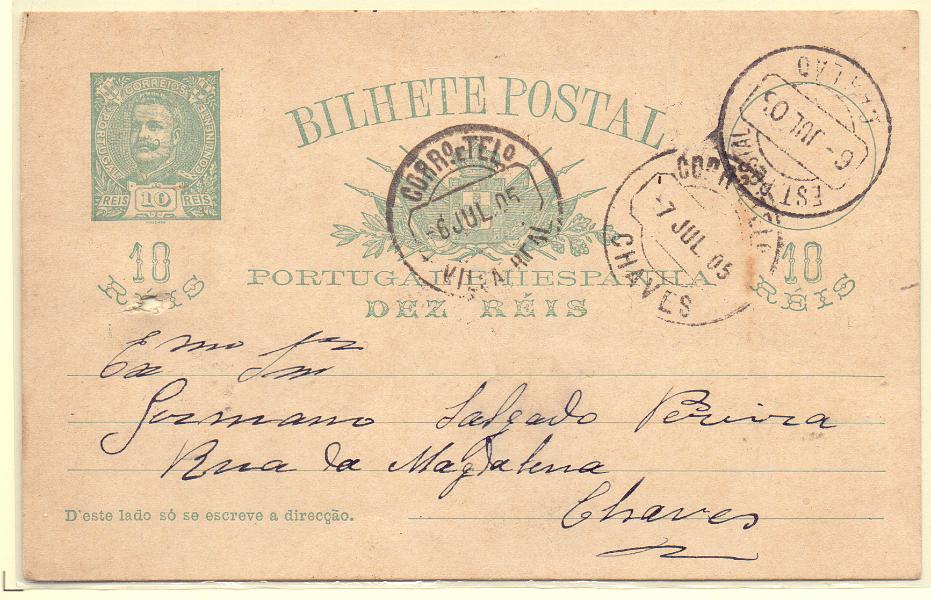 CORREIOS
PORTUGAL
CONTINENTE
REIS 10 REIS
BILHETE POSTAL
CORRO E TELO
-6 JUL. 05
VILLA REAL
CORRO
-7 JUL 05
CHAVES
EST POSTAL
6- JUL 05
10 RÉIS
PORTUGAL E HESPANHA
10 RÉIS
DEZ RÉIS
Exmo Snr
Germano Salgado Pereira
Rua da Magdalena
Chaves
D'este lado só se escreve a direcção.